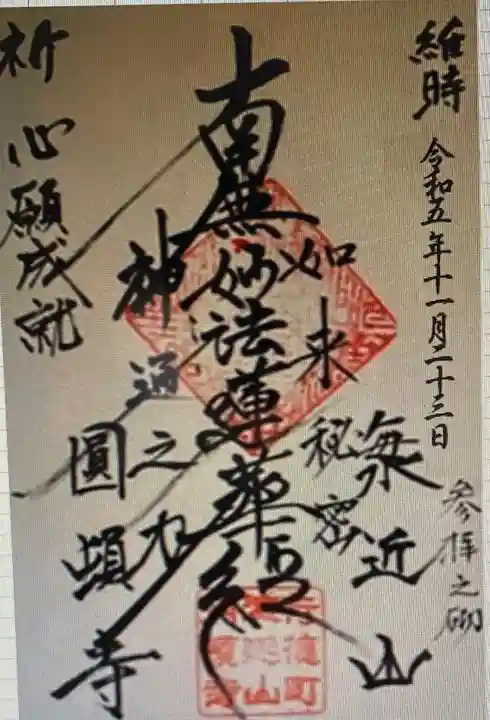 維時 令和五年十一月二十三日
参拝之砌
海近山
如来秘密
南無妙法蓮華経
神通之力
圓頓寺
祈 心願成就